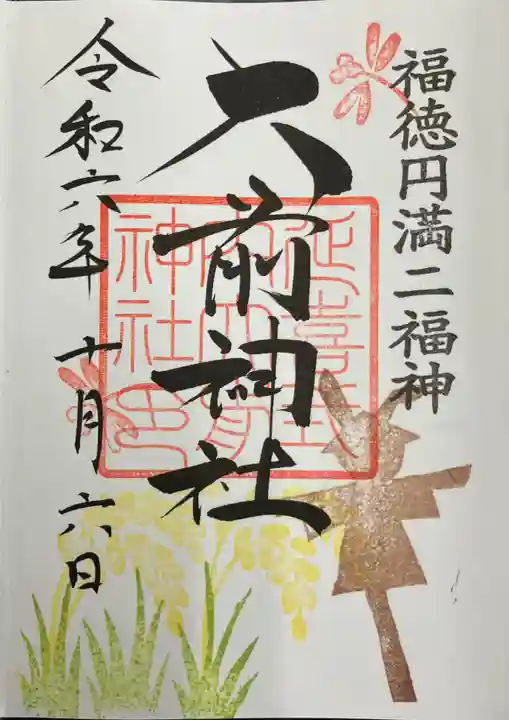 福徳円満二福神
大前神社
延喜式
内大前
神社印
令和六年十月六日